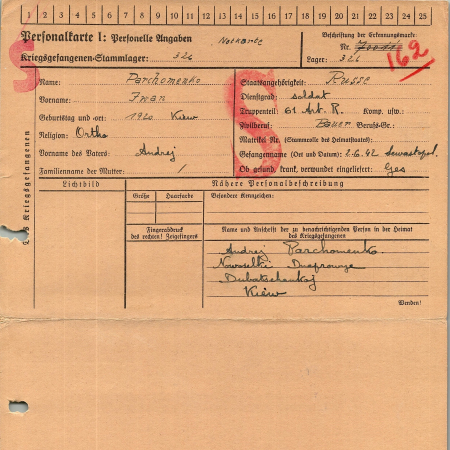 1 2 3 4 5 6 7 8 9 10 11 12 13 14 15 16 17 18 19 20 21 22 23 24 25
Personalkarte I: Personelle Angaben
Kriegsgefangenen-Stammlager: 326
Notkarte
Beschriftung der Erkennungsmarke
Nr.
Lager: 326
162
S
S
Des Kriegsgefangenen
Name: Parchomenko
Vorname: Iwan
Geburtstag und -ort: 1920 Kiew
Religion: Ortho
Vorname des Vaters: Andrej
Familienname der Mutter: /
Staatsangehörigkeit: Russe
Dienstgrad: soldat
Truppenteil: 61 Art. R. Komp. usw.:
Zivilberuf: Bauer Berufs-Gr.:
Matrikel Nr. (Stammrolle des Heimatstaates):
Gefangennahme (Ort und Datum): 2.6.42 Sewastopol.
Ob gesund, krank, verwundet eingeliefert: Ges
Lichtbild
Nähere Personalbeschreibung
Größe
Haarfarbe
Besondere Kennzeichen:
Fingerabdruck
des rechten! Zeigefingers
Name und Anschrift der zu benachrichtigenden Person in der Heimat
des Kriegsgefangenen
Andrej Parchomenko
Nowoselki
Kiew
Wenden!